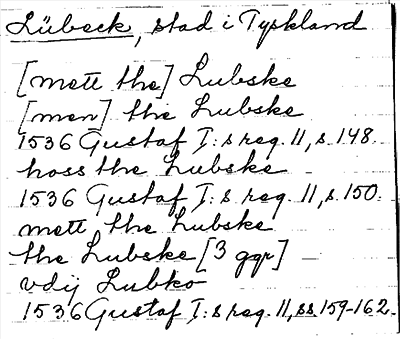 Lübeck, stad i Tyskland
[mett the] Lubske
[men] the Lubske
1536 Gustaf I:s reg. 11, s. 148.
hoss the Lubske
1536 Gustaf I:s reg. 11, s. 150.
mett the Lubske
the Lubske [3 ggr]
vdij Lubko
1536 Gustaf I:s reg. 11, ss. 159-162.